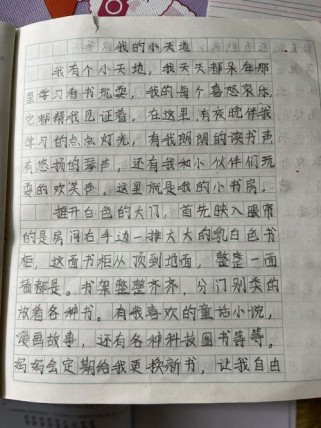 我的小天地
我有个小天地，我天天都呆在那
里学习看书玩耍，我的每个喜怒哀乐，
它都帮我见证着。在这里，有夜晚伴我
学习的点点灯光，有我朗朗的读书声，
有悠扬的琴声，还有我和小伙伴们玩
耍的欢笑声。这里就是我的小书房。
推开白色的大门，首先映入眼帘
的是房间右手边一排大大的乳白色书
柜，这面书柜从顶到地面，整整一面
墙都是。书架整整齐齐，分门别类的
放着各种书。有我喜欢的童话小说，
漫画故事，还有各种科技图书等等。
妈妈会定期给我更换新书，让我自由